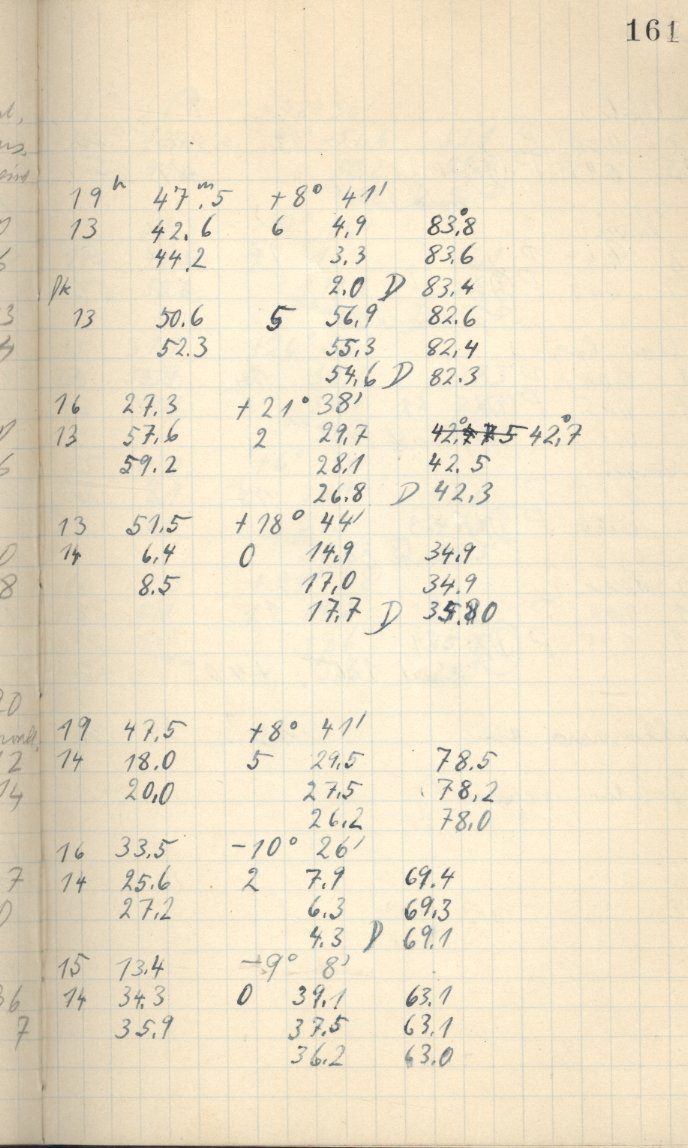 161
19ʰ 47ᵐ.5 +8° 41'
13 42.6 6 4.9 83°.8
44.2 3.3 83.6
2.0 D 83.4
13 50.6 5 56.9 82.6
52.3 55.3 82.4
54.6 D 82.3
16 27.3 +21° 38'
13 57.6 2 29.7 42°.7
59.2 28.1 42.5
26.8 D 42.3
13 51.5 +18° 44'
14 6.4 0 14.9 34.9
8.5 17.0 34.9
17.7 D
19 47.5 +8° 41'
14 18.0 5 29.5 78.5
20.0 27.5 78.2
26.2 78.0
16 33.5 -10° 26'
14 25.6 2 7.9 69.4
27.2 6.3 69.3
4.3 D 69.1
15 13.4 9° 8'
14 34.3 0 39.1 63.1
35.9 37.5 63.1
36.2 63.0